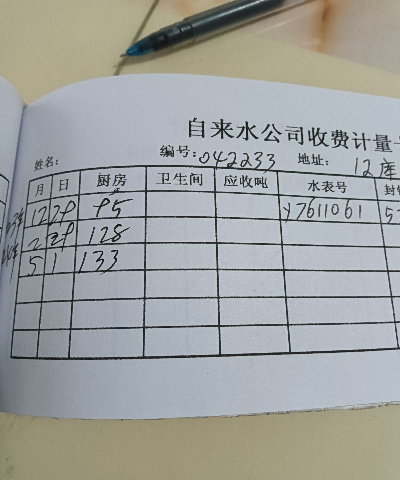 自来水公司收费计量
姓名: 编号: 042233 地址: 12库
月 日 厨房 卫生间 应收吨 水表号
12 29 95 Y7611061
2 29 128
5 1 133